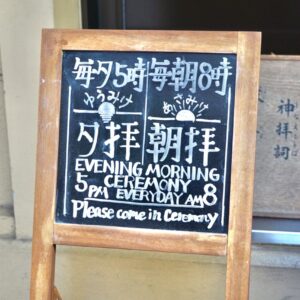 毎夕5時 毎朝8時
ゆうみけ あさみけ
夕拝 朝拝
EVENING MORNING
CEREMONY
5 PM EVERYDAY AM 8
Please come in Ceremony
神拝詞